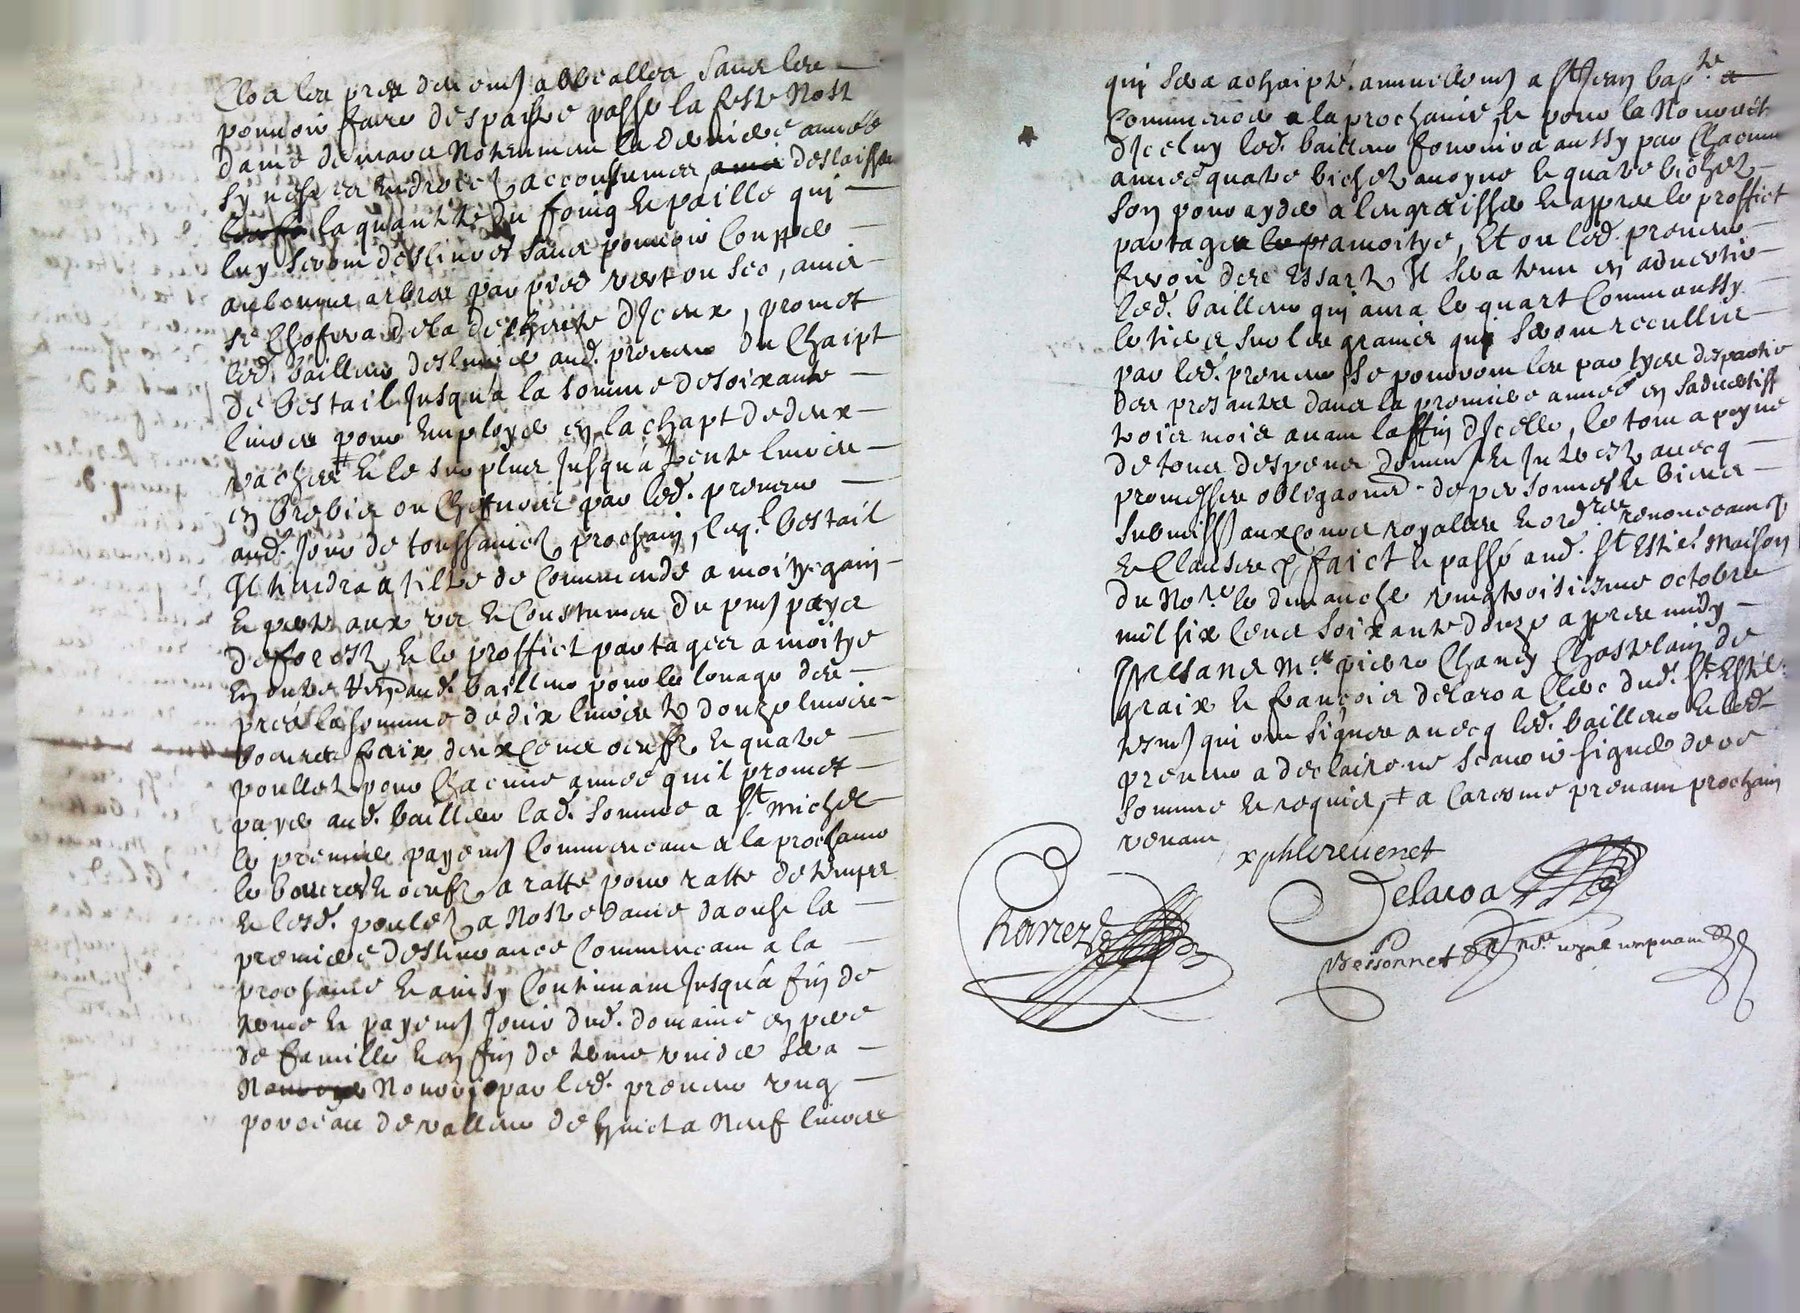 Clorre les pres deuem̃ abbealler sans les
pouuoir faire despaistre passé la feste Nostre
dame de mars Notemment la derniere année
sy ne sera endroictz accoustumes ains deslaissera
la quantité du foing et paille qui
luy seront deslivres sans pouuoir coupper
aulcungs arbres par pied vert ou sec, ains
se choffera de la descheute d'Iceux, promet
led. bailleur deslivrer aud. preneur du chaipt
de bestail Jusqu'a la somme de soixante
livres pour employer en lachapt de deux
vaches ‡ et le surplus Jusqu'a trente livres
en brebis ou chesvres par led. preneur
aud. Jour de toussainctz prochain, leq.l bestail
Il tiendra a tiltre de commande a moitye gain
et perte aux vz et coustumes du pñt pays
de forestz et le proffict partager a moitye
en outre tiendra aud. bailleur pour le louage des
pres la somme de dix livres et douze livres
beurre frais deux cens oeufz et quatre
poulletz pour chacune année quil promet
payer aud. bailleur lad. somme a St. Michel
le premier payem̃ commenceant a la prochaine
le beurre et oeufz a ratte pour ratte de temps
et lesd. pouletz a Nostre dame daoust la
premiere deslivrance commenceant a la
prochaine et ainsy continuant Jusqu'a fin de
terme et payem̃ Jouir dud. domaine en pere
de famille et en fin de terme vuider sera
Nourry par led. preneur vng
porceau de valleur de huict a Neuf livres
qui sera achaipté annuellem̃ a St Jean bapte. a
commencer a la prochaine et pour la Nourrit.
d'Iceluy led. bailleur fournira aussy par chacune
année quatre bichetz auoyne et quatre bichetz
son pour ayder a lengraisser et appres le proffict
partager a moitye, Et ou led. preneur
feroit des Essartz Il sera tenu en aduertir
led. bailleur qui aura le quart comme aussy
le tiers sur les grains qui seront receullis
par led. preneur, Se pourront les parties despartir
des presantes dans la premiere année en saduertiss.
trois mois auant la fin d'Icelle, le tout a peyne
de tous despens domm. et Interestz auecq
promesses obligaons de personnes et biens
submiss. aux cours royalles et ord.res renonceaons
et clauses p. faict et passé aud. St Estie. maison
du No.re le dimanche vingtroisiesme octobre
mil six cens soixante douze apres midy
Presans Me. pierre Chaney Chastelain de
graix et françois delaroa clerc dud. St. Estie.
tesm̃ qui ont signés auecq led. bailleur et led.
preneur a declairé ne scauoir signer de ce
sommé et requis, ‡ a caresme prenant prochain
venant
xphlereuenet
Delaroa
Charrezde
Bessonnet No.re royal reçeuant